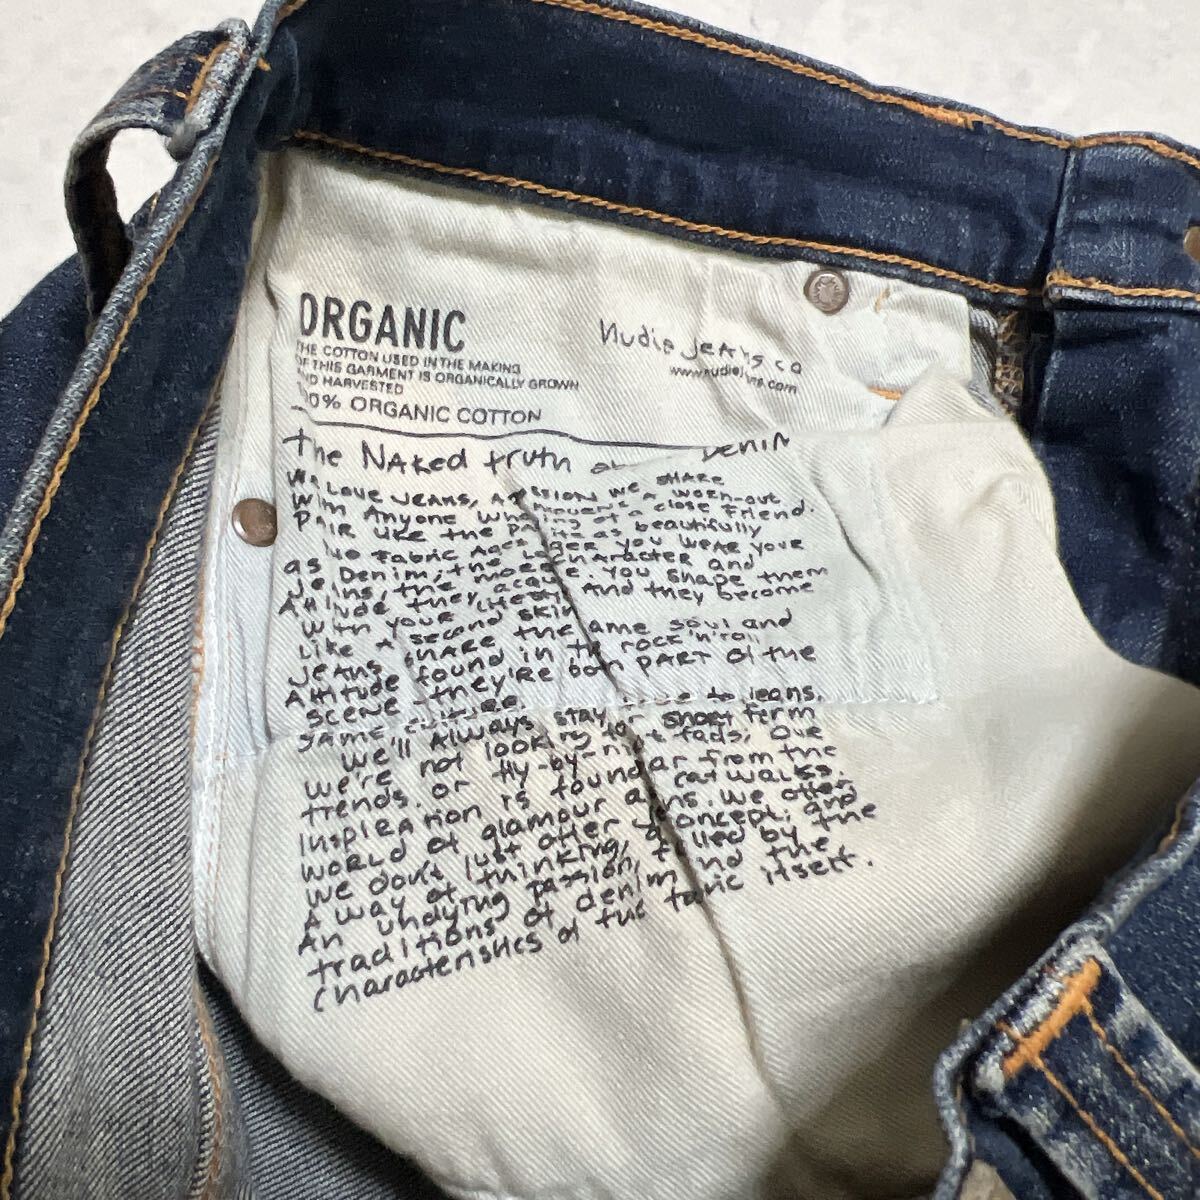 ORGANIC
THE COTTON USED IN THE MAKING
OF THIS GARMENT IS ORGANICALLY GROWN
AND HARVESTED
100% ORGANIC COTTON
Nudie Jeans co
www.nudiejeans.com
The NAKed truth DENIM
We LOVE JEANS, A PASSION WE SHARE
With Anyone WORN-OUT
PAIR LIKE THE of a close Friend.
No Fabric Ages as beautifully
as DENIM, the you WEAR YOUR
Jeans, the more CHARACTER and
Attitude they acquire. You shape them
With YOUR Lifestyle And they become
LIKE A second skin
JEANS SHARE the same soul and
Attitude found in the rock'n'roll
SCENE - they're both PART of the
same culture.
We'll Always stay to Jeans.
We're not looking for short term
trends, or fly-by-night fads; Our
Inspiration is found far from the
WORLD of glamour and catwalks.
We don't Just offer Jeans, We offer
A way of thinking, a concept; and
An undying passion, fueled by the
traditions of denim and the
Characteristics of the fabric itself.